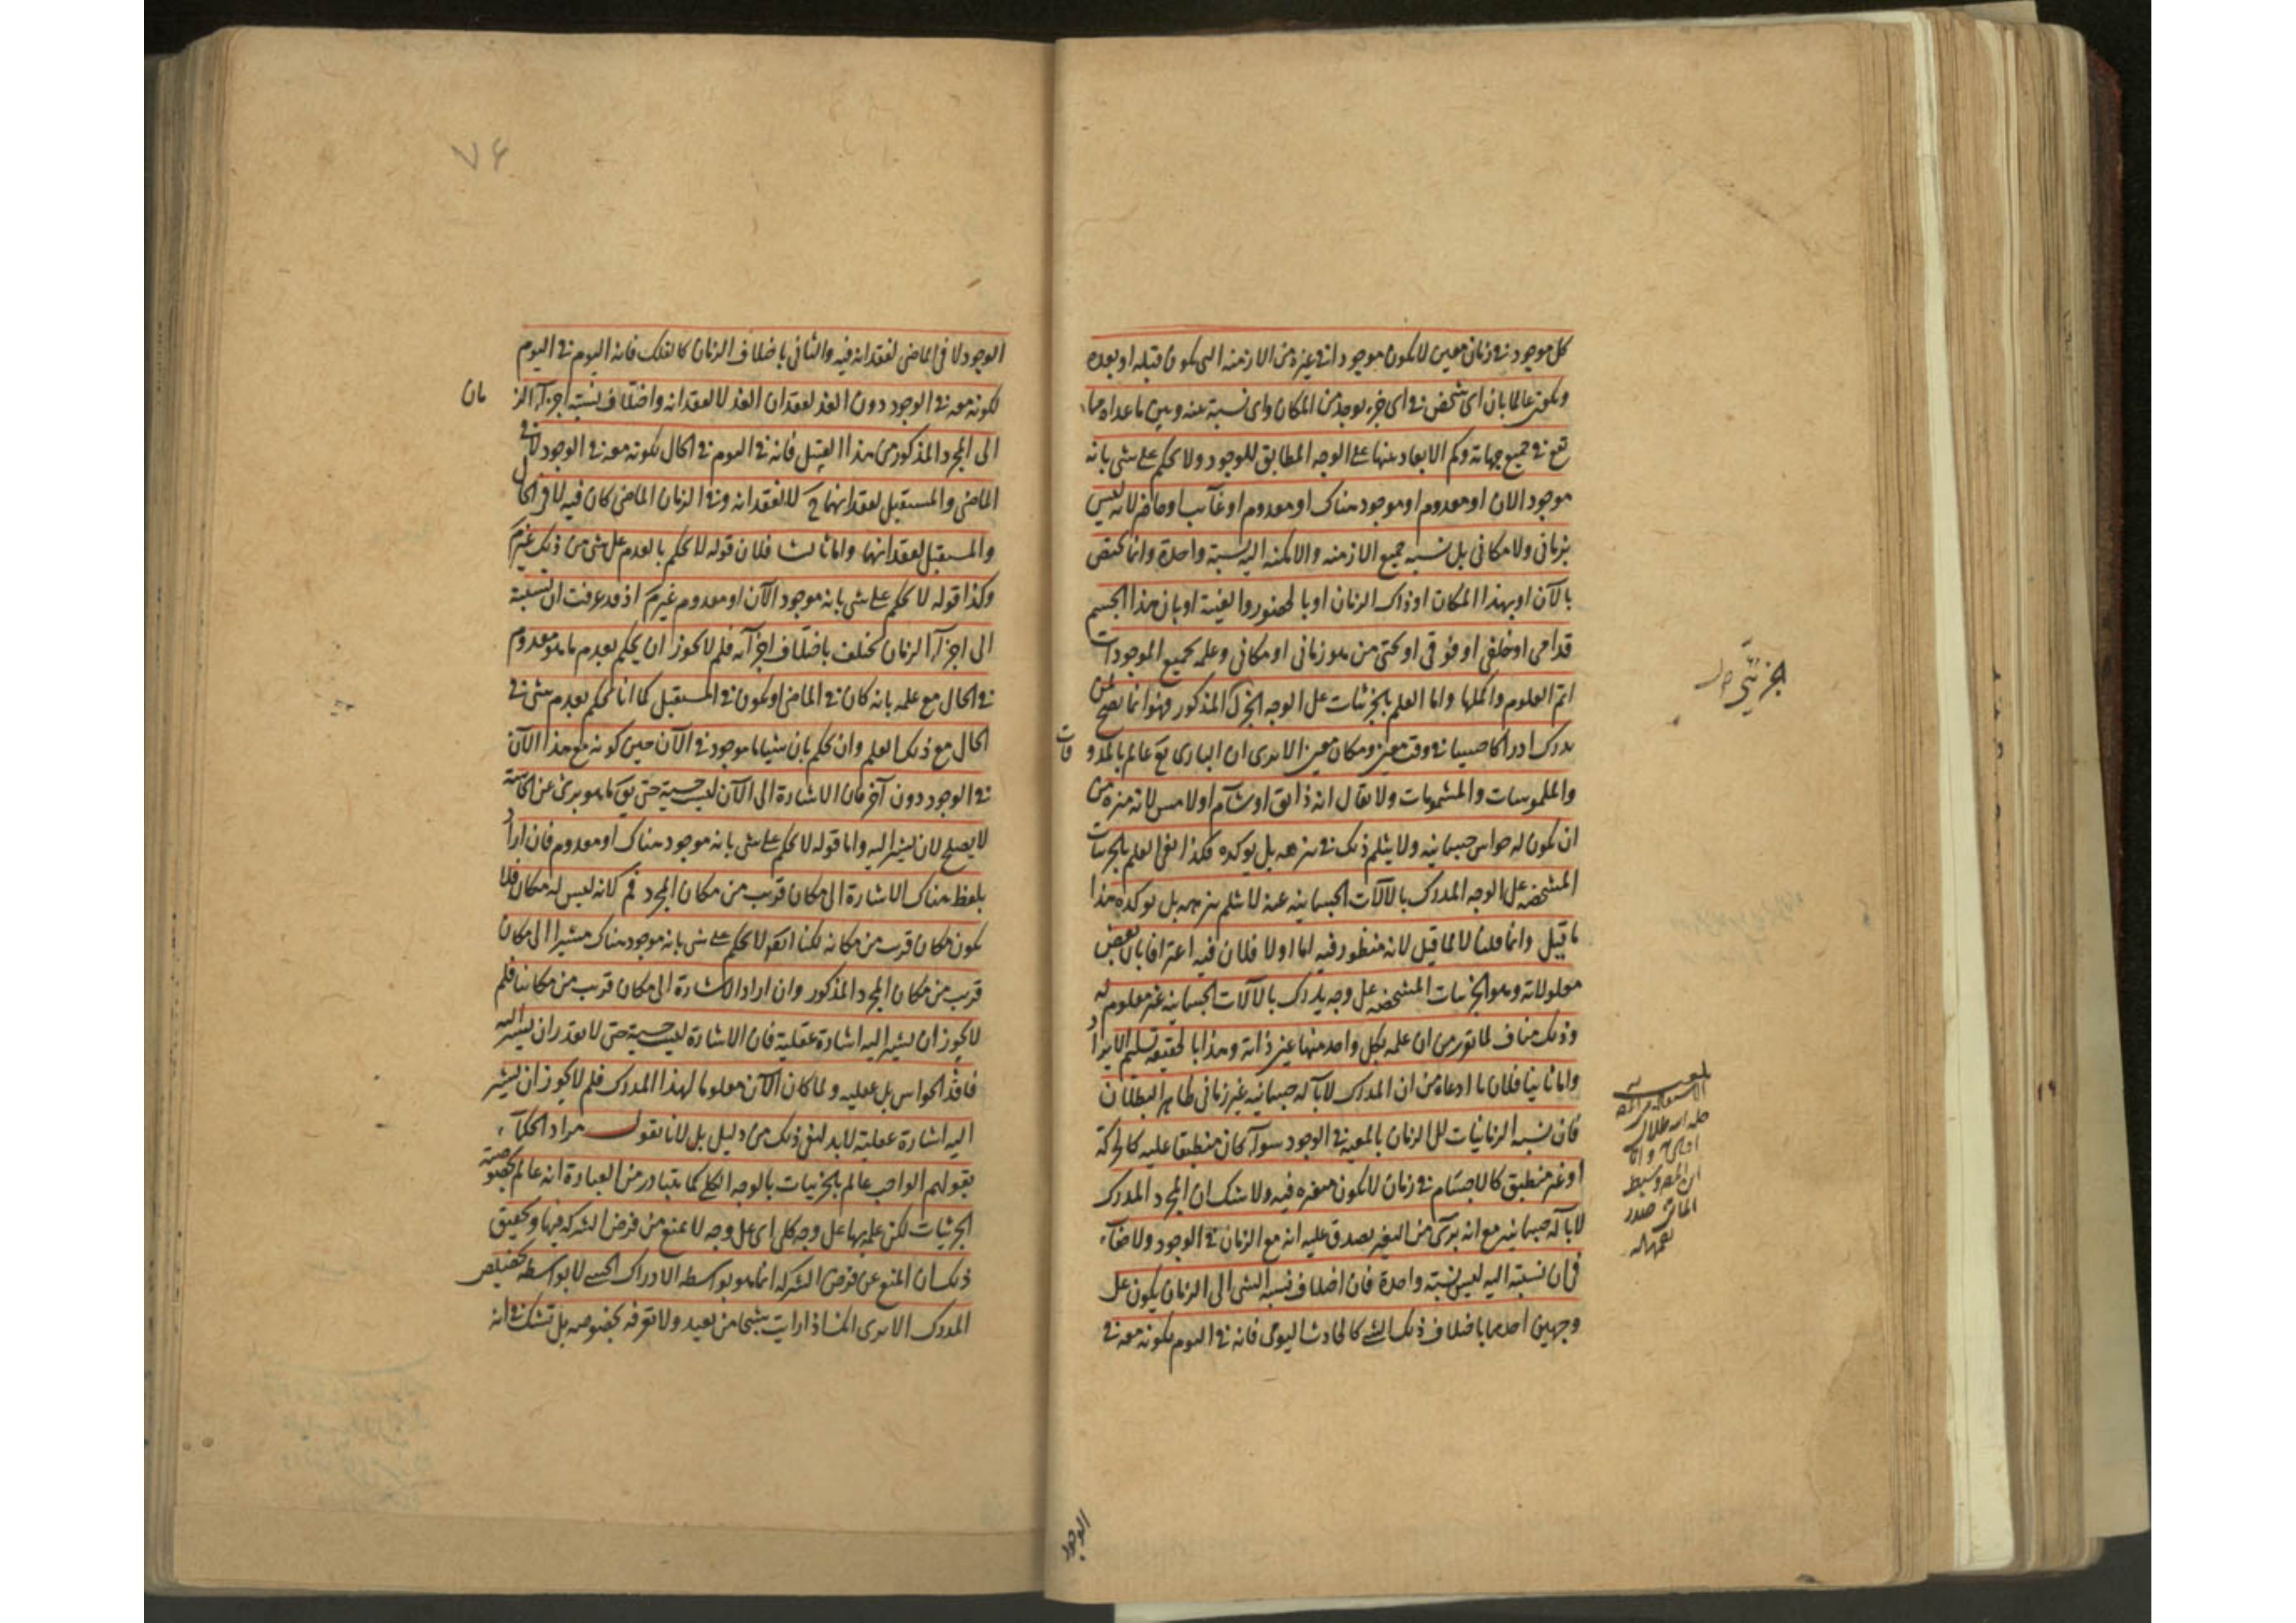 كل موجود في زمان معين لا يكون موجودا في غيره من الازمنة التي يكون قبله او بعده
ويكون عالما بان اى شخص في اى جزء يوجد من المكان واى نسبة عنه وبين ما عداه مما
تقع في جميع جهاته وكم الابعاد عنها على الوجه المطابق للوجود ولا يحكم على شى بانه
موجود الان او معدوم او موجود هناك او معدوم او غآيب او حاضر لانه ليس
بزمانى ولا مكانى بل نسبة جميع الازمنه والامكنه اليه نسبة واحدة وانما يختص
بالآن او بهذا المكان او ذاك الزمان او بالحضور والغيبة او بان هذا الجسم
قدامى او خلفى او فوقى او تحتى من هو زمانى او مكانى وعلمه بجميع الموجودات
اتم العلوم واكملها واما العلم بالجزئيات على الوجه الجزئى المذكور فهو انما يصح لمن
يدرك ادراكا حسيا في وقت معين ومكان معين الا ترى ان البارى تع عالم بالمذوقات
والملموسات والمشمومات ولا يقال انه ذائق او شآم او لامس لانه منزه من
ان يكون له حواس جسمانيه ولا يثلم ذلك في تنزهه بل يوكده فكذا نفى العلم بالجزئيات
المشخصه على الوجه المدرك بالآلات الجسمانيه عنه لا يثلم تنزهه بل يوكده هذا
ما قيل وانما قلنا لا لما قيل لانه منظور فيه اما اولا فلان فيه اعترافا بان بعض
معلولاته وهو الجزئيات المشخصه على وجه يدرك بالآلات الجسمانيه غير معلوم له
وذلك مناف لما تقرر من ان علمه بكل واحد منها عين ذاته وهذا بالحقيقه تسليم الايراد
واما ثانيا فلان ما ادعاه من ان المدرك لا بآله جسمانيه غير زمانى ظاهر البطلان
فان نسبة الزمانيات الى الزمان بالمعيه في الوجود سوآء كان منطبقا عليه كالحركة
او غير منطبق كالاجسام في زمان لا يكون متغيره فيه ولا شك ان المجرد المدرك
لا بآله جسمانيه مع انه برئ من التغير يصدق عليه انه مع الزمان في الوجود ولا خفآء
فى ان نسبته اليه ليس نسبة واحدة فان اختلاف نسبة الشى الى الزمان يكون على
وجهين احدهما باختلاف ذلك الشئ كالحادث اليومى فانه في اليوم لكونه معه في
الجزئى
الوجود
٧٤
الوجود لا فى الماضى لفقدانه فيه والثانى باختلاف الزمان كالفلك فانه اليوم في اليوم
لكونه معه في الوجود دون الغد لفقدان الغد لا لفقدانه واختلاف نسبة اجزآء الزمان
الى المجرد المذكور من هذا القبيل فانه في اليوم في الحال لكونه معه في الوجود لا في
الماضى والمستقبل لفقدانهما ح لا لفقدانه وفي الزمان الماضى كان فيه لا فى الحال
والمستقبل لفقدانهما واما ثالثا فلان قوله لا يحكم بالعدم على شى من ذلك غير م
وكذا قوله لا يحكم على شى بانه موجود الآن او معدوم غير م اذ قد عرفت ان نسبته
الى اجزآء الزمان تختلف باختلاف اجزآئه فلم لا يجوز ان يحكم بعدم ما هو معدوم
في الحال مع علمه بانه كان في الماضى او يكون في المستقبل كما انا نحكم بعدم شى في
الحال مع ذلك العلم وان يحكم بان شيئا ما موجود في الآن حين كونه مع هذا الآن
في الوجود دون آخر فان الاشارة الى الآن ليست حسية حتى يق ما هو برئ عن الحاسة
لا يصلح لان يشير اليه واما قوله لا يحكم على شى بانه موجود هناك او معدوم فان اراد
بلفظ هناك الاشارة الى مكان قريب من مكان المجرد فم لانه ليس له مكان فلا
يكون مكان قريب من مكانه لكنا ايضا لا نحكم على شى بانه موجود هناك مشيرا الى مكان
قريب من مكان المجرد المذكور وان اراد الاشارة الى مكان قريب من مكاننا فلم
لا يجوز ان يشير اليه اشارة عقلية فان الاشارة ليست حسية حتى لا يقدر ان يشير اليه
فاقد الحواس بل عقليه ولما كان الآن معلوما لهذا المدرك فلم لا يجوز ان يشير
اليه اشارة عقلية لا بد لنفى ذلك من دليل بل لانا نقول مراد الحكمآء
بقولهم الواجب عالم بالجزئيات بالوجه الكلى كما يتبادر من العبارة انه عالم بخصوصية
الجزئيات لكن علمه بها على وجه كلى اى على وجه لا يمنع من فرض الشركه فيها وتحقيق
ذلك ان المنع عن فرض الشركه انما هو بواسطه الادراك الحسى لا بواسطه تخصيص
المدرك الا ترى انك اذا رايت شبحا من بعيد ولا تعرفه بخصوصه بل تشك في انه